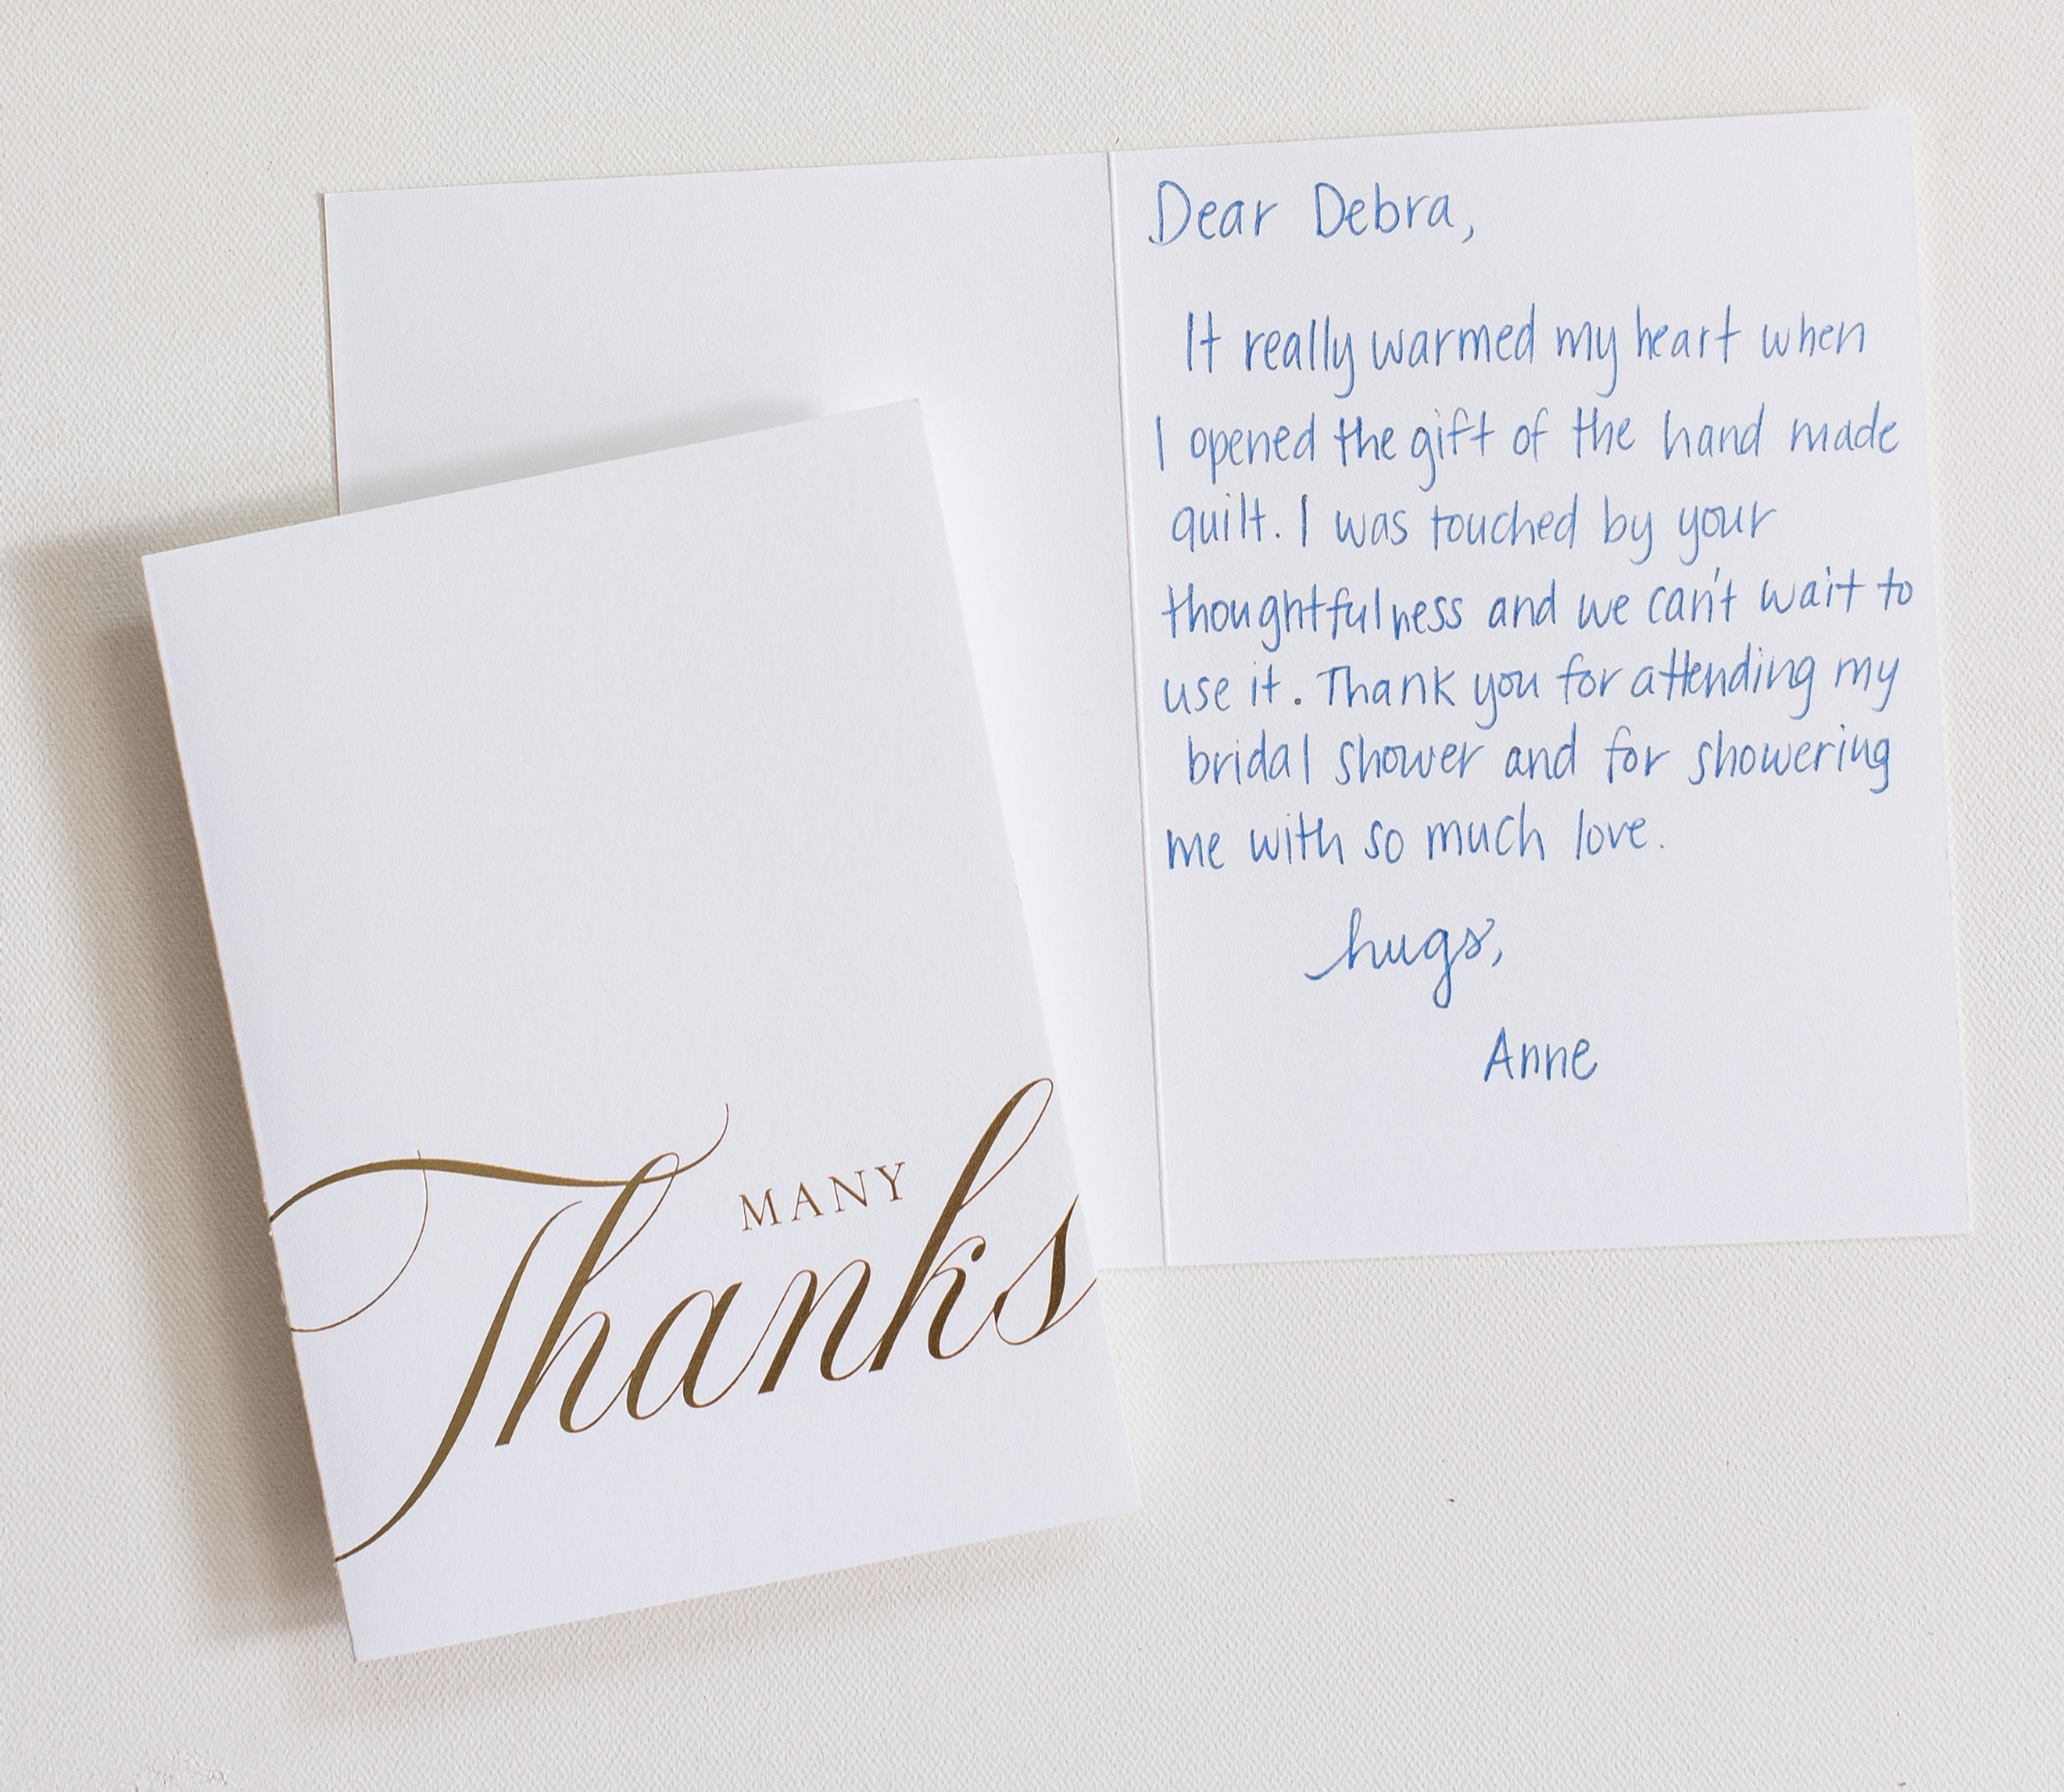 Dear Debra,
It really warmed my heart when
I opened the gift of the hand made
quilt. I was touched by your
thoughtfulness and we can't wait to
use it. Thank you for attending my
bridal shower and for showering
me with so much love.
hugs,
Anne
MANY
Thanks